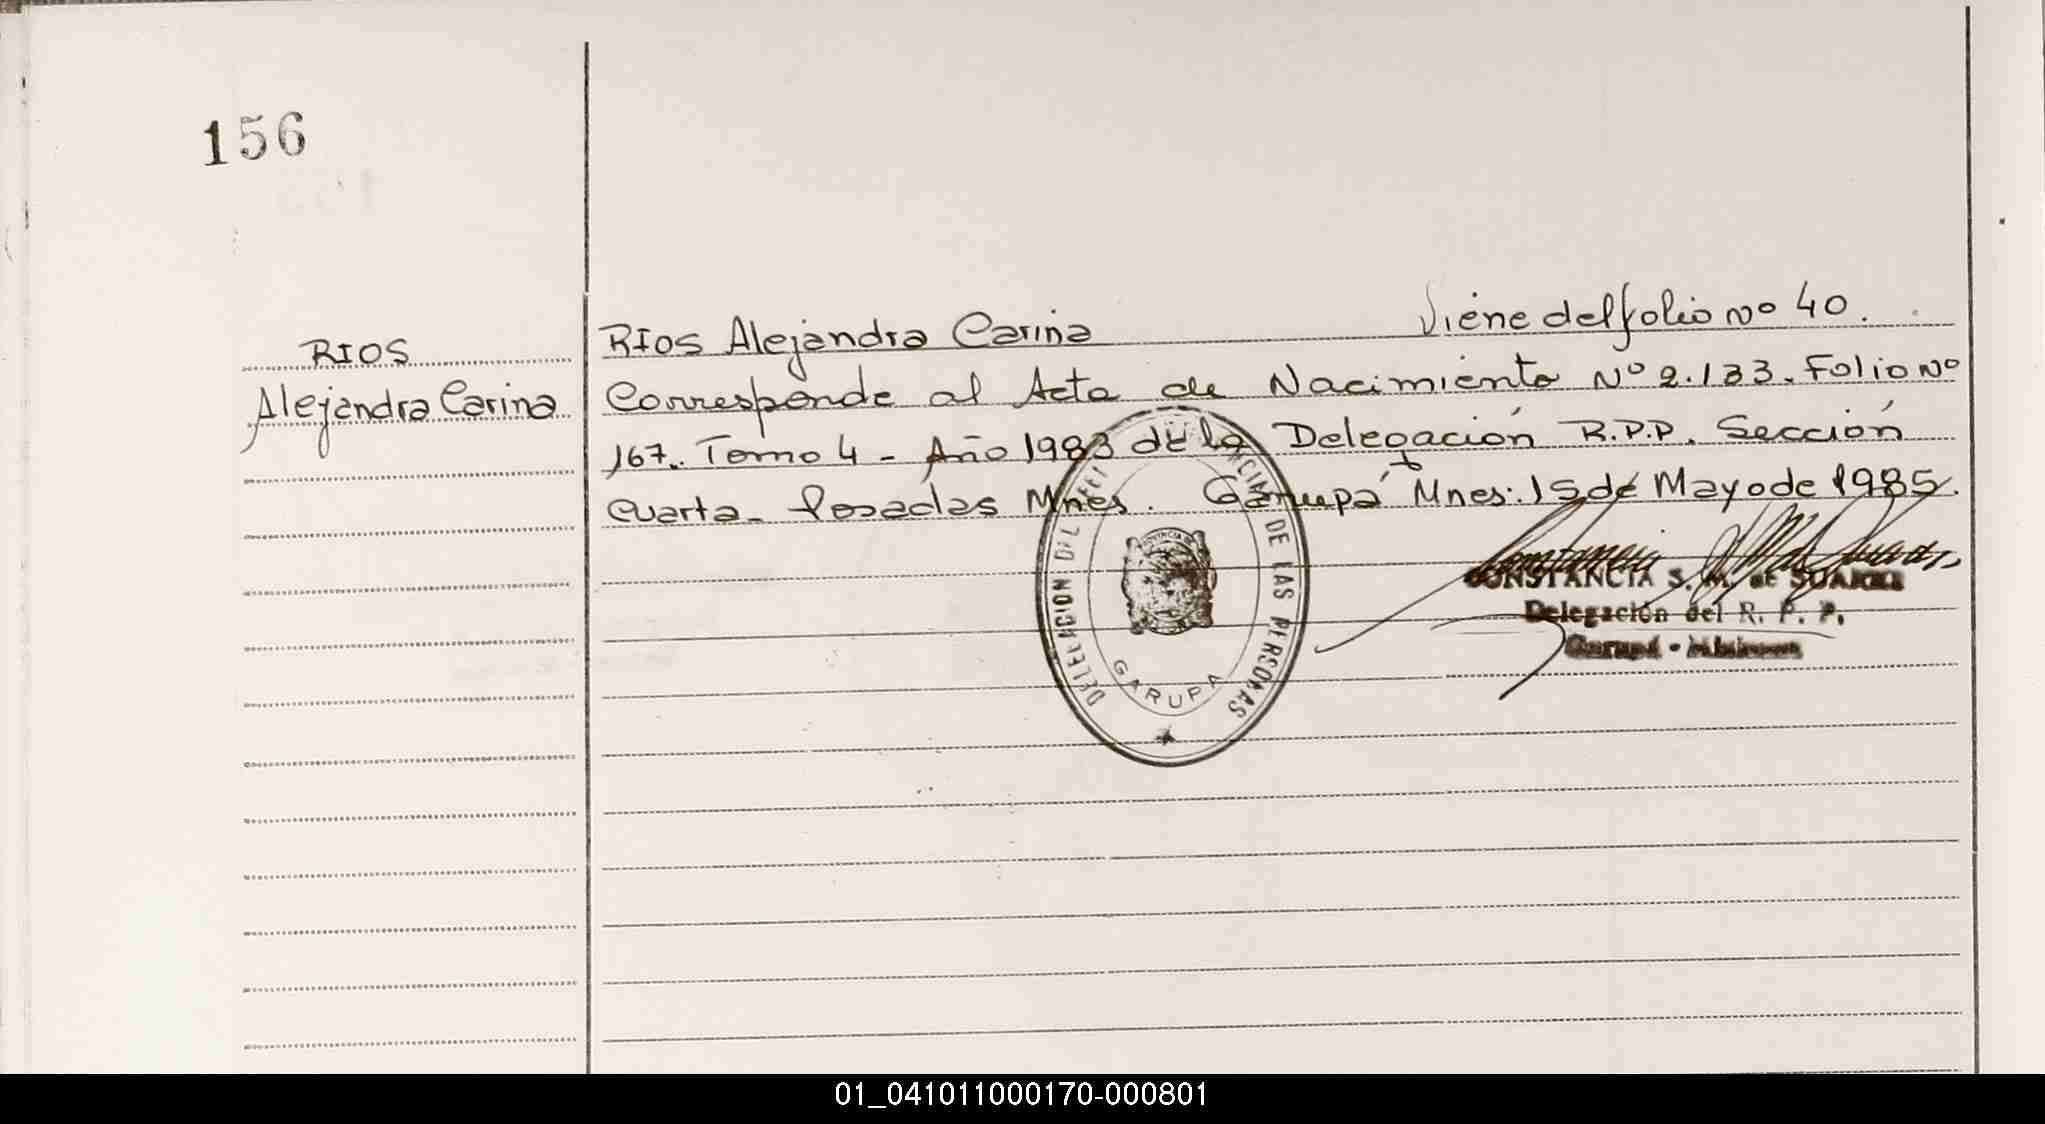 156
RIOS
Alejandra Carina
RIOS Alejandra Carina Viene del folio Nº 40.
Corresponde al Acta de Nacimiento Nº 2.133. Folio Nº
167. Tomo 4 - Año 1983 de la Delegación R.P.P. Sección
Cuarta - Posadas Mnes. Garupá Mnes: 15 de Mayo de 1985.
CONSTANCIA S. M. de SUAREZ
Delegación del R. P. P.
Garupá - Misiones
DELEGACION DEL DE LAS PERSONAS
GARUPA
01_041011000170-000801